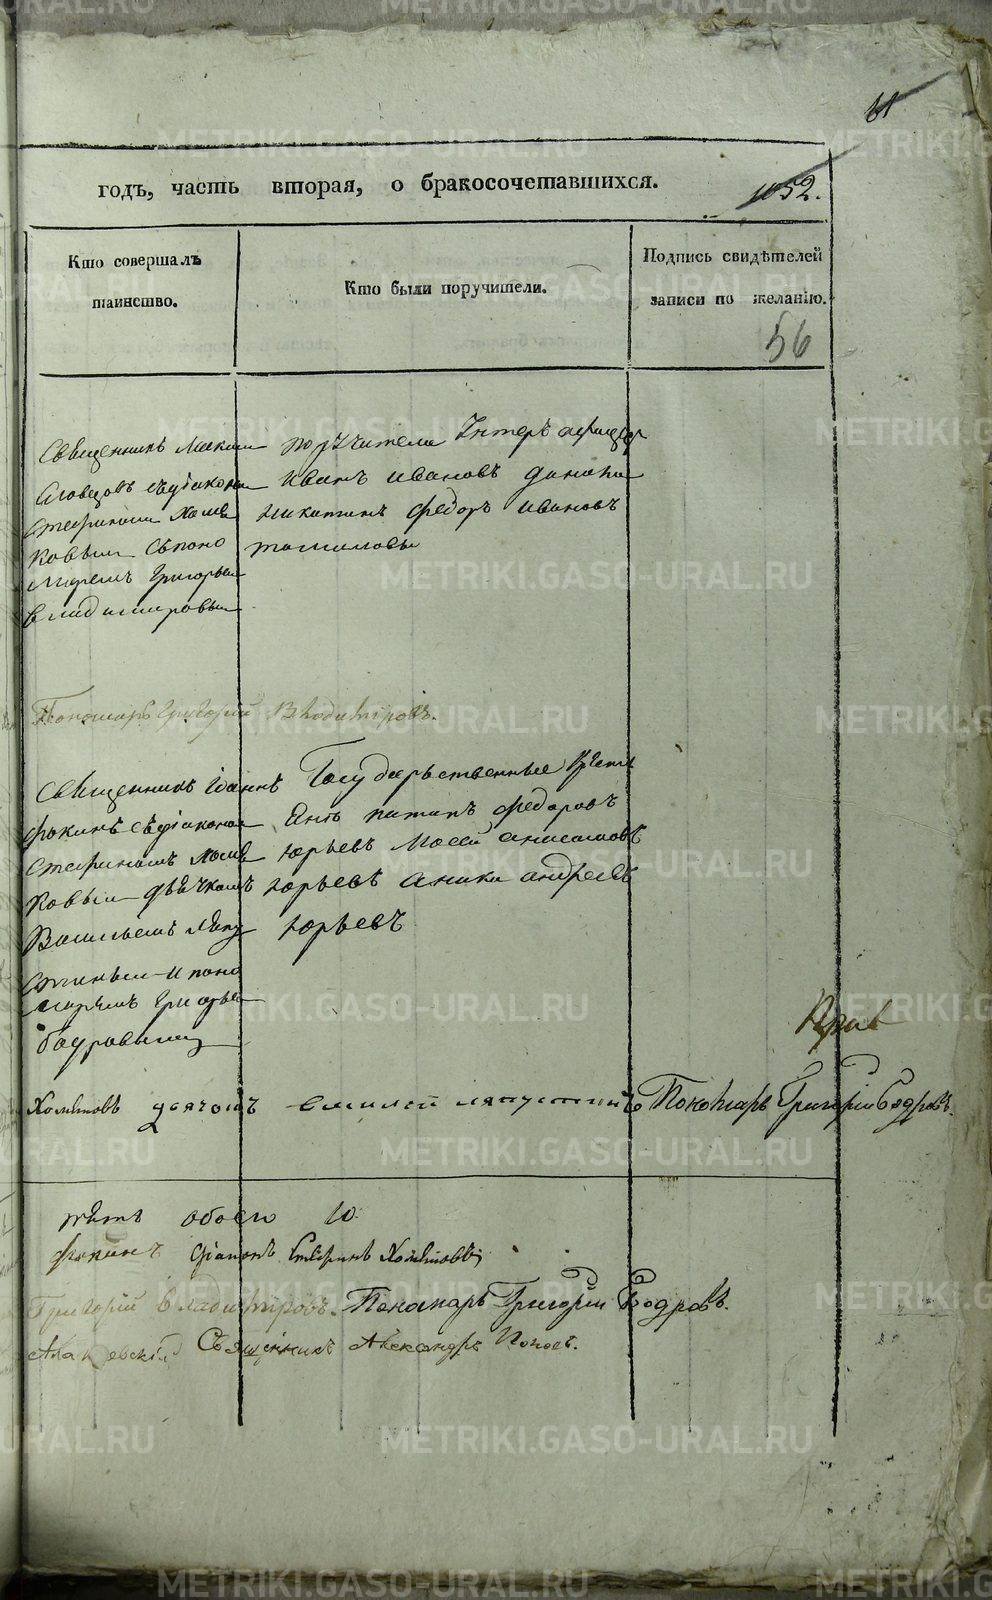 61
годъ, часть вторая, о бракосочетавшихся.
1052.
Кто совершалъ таинство.
Кто были поручители.
Подпись свидѣтелей записи по желанію.
56
Священникъ
съдіакономъ
Стефаномъ Хомя
ковым съпоно
маремъ Григорьем
владимировым
порѣчители Унтеръ офицер
Иванъ Ивановъ
Никитинъ федоръ ивановъ
Пономарь Григорий Владимировъ.
Священникъ Iоаннъ
фокинъ съдіаконом
Стефаномъ Хомя
ковым дьячкомъ
Васильемъ Лапу
стиным и поно
марем Григорье
бодровым
Государственные Кресть
яно потапъ федоровъ
Юрьевъ Мосей анисимовъ
Юрьевъ аника андреевъ
Юрьевъ
Хомяковъ дьячокъ василей лапустинъ Пономарь Григорій Бодровъ.
етъ обоего 10
фокинъ діаконъ Стефанъ Хомяковъ
Григорий Владимировъ. Пономарь Григории Бодровъ.
Священникъ Александръ Поповъ.
METRIKI.GASO-URAL.RU